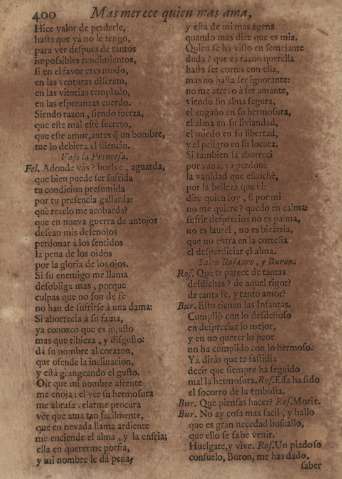 400 Mas merece quien mas ama,
Hice valor de perderle,
hasta que ya no le tengo,
para ver despues de tantos
imposibles rendimientos,
si en el favor eres modo,
en las venturas discreto,
en las violencias templado,
en las esperanzas cuerdo.
Siendo razon, siendo fuerza,
que este mal esté secreto,
que este amor, antes que hombre,
me lo debiera el silencio.
Vase la Princesa.
Fel. Adonde vás? buelve, aguarda,
que bien puede ser sufrida
tu condicion presumida
por tu presencia gallarda:
qué rezelo me acobarda?
que en nueva guerra de antojos
desean mis
perdonar a los sentidos
la pena de los oidos
por la gloria de los ojos.
Si su enemigo me llama,
desobliga mas, porque
culpas que no son de fe
no han de sufrirse à una dama:
Si aborrecia à su fama,
ya conozco que es injusto,
mas que tibieza, y disgusto:
dá su nombre al corazon,
que ofende la inclinacion,
y está grangeando el gusto.
Oir que mi nombre afrente
me enoja: el ver su hermosura
me abrasa: olarme procura
vèr que ama tan facilmente,
que en nevada llama ardiente
me enciende el alma, y la enseña;
ella en quererme porfia,
y mi nombre le dá pena,
y está de mi mas agena
quando mas dice que es mia.
Quien se ha visto en semejante
duda? que es razon querella
hasta ser cortés con ella,
mas no hasta ser ignorante:
no me atrevo à ser amante,
viendo sin alma segura,
el engaño en su hermosura,
el alma en su liviandad,
el miedo en su libertad,
y el peligro en su locura.
Si tambien la aborreci
por vana, y presume
la vanidad que
por la belleza que vi:
dirè quien soy, si por mi
no me quiere? quedo en calma:
sufrir desprecios no es palma,
no es laurel, no es bizarria,
que no entra en la cortesia
el desperdiciar el alma.
Salen Rosauro, y Buron.
Ros. Que te parece de tantas
desdichas? de aquel rigor?
de tanta fe, y tanto amor?
Bur. Estas tienen las Infantas.
Cumpliò con lo desdeñoso
en despreciar lo mejor,
y en no querer lo peor
no ha cumplido con lo hermoso.
Ya diràs que te fastidia
decir que siempre ha seguido
mal la hermosura. Ros. Essa ha sido
el socorro de la embidia.
Bur. Què piensas hacer? Ros. Morir.
Bur. No ay cosa mas facil, y hallo
que es gran necedad buscallo,
que ello se sabe venir.
Huelgate, y vive. Ros. Un piadoso
consuelo, Buron, me has dado.
saber